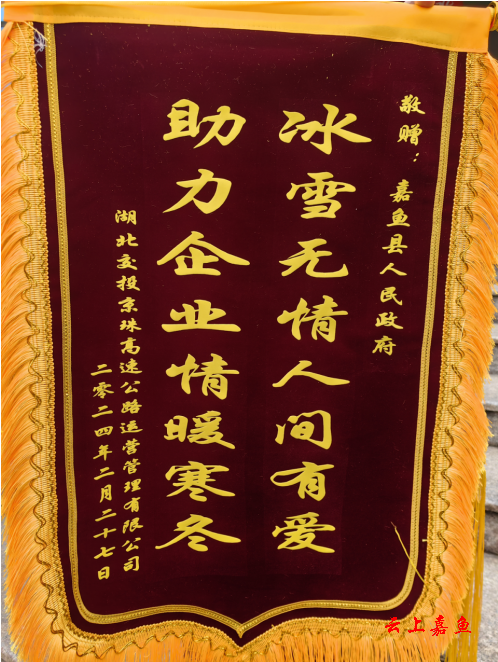 敬赠：嘉鱼县人民政府
冰雪无情人间有爱
助力企业情暖寒冬
湖北交投京珠高速公路运营管理有限公司
二零二四年二月二十七日
云上嘉鱼